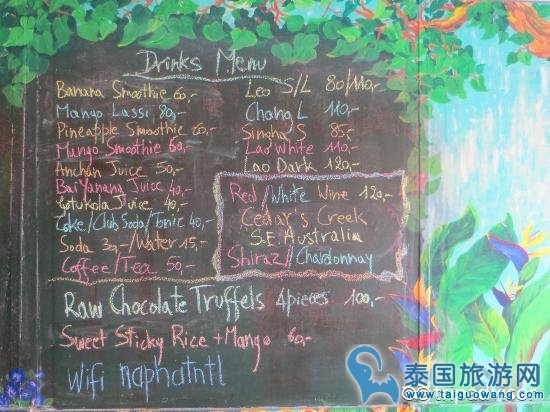 Drinks Menu
Banana Smoothie 60,-
Mango Lassi 80,-
Pineapple Smoothie 60,-
Mango Smoothie 60,-
Anchan Juice 50,-
Bai Yanang Juice 40,-
Gotukola Juice 40,-
Coke/Club Soda/Tonic 40,-
Soda 30,-/Water 15,-
Coffee/Tea 50,-
Leo S/L 80/110,-
Chang L 110,-
Singha S 85,-
Lao White 110,-
Lao Dark 120,-
Red/White Wine 120,-
Cedar's Creek
S.E. Australia
Shiraz//Chardonnay
Raw Chocolate Truffels 4pieces 100,-
Sweet Sticky Rice + Mango 60,-
Wifi naphatntl
泰国旅游网
www.taiguowang.com